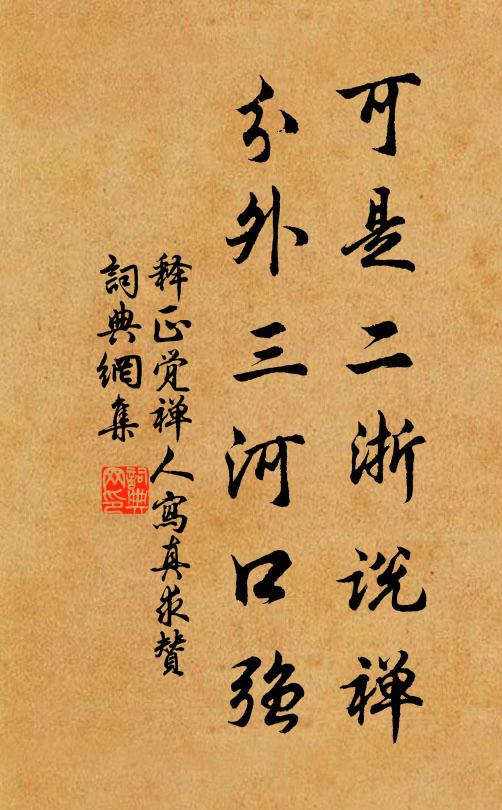 可是二浙说禅
分外三河口强
释正觉禅人寫真求赞
詞典網集
詞典
网印